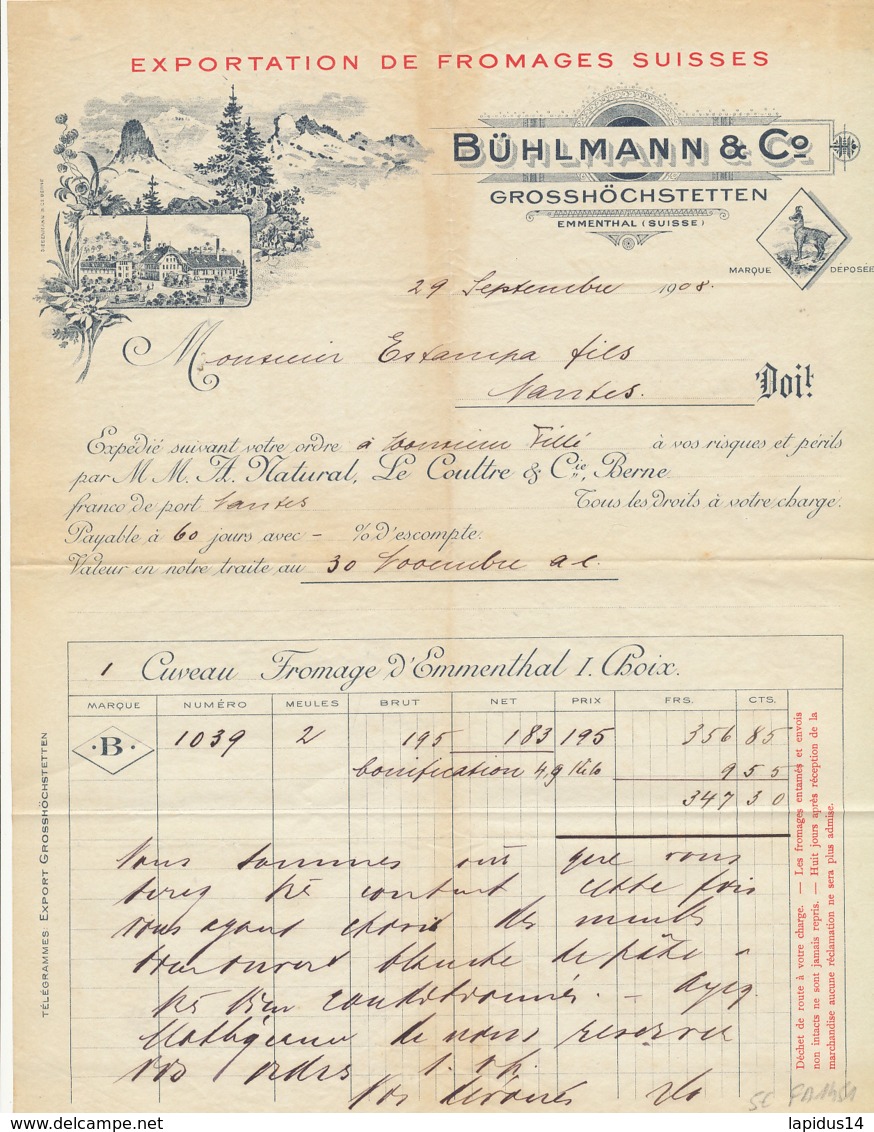 EXPORTATION DE FROMAGES SUISSES
BÜHLMANN & Cº
GROSSHÖCHSTETTEN
EMMENTHAL (SUISSE)
MARQUE DÉPOSÉE
29 Septembre 1908.
Monsieur Estampa fils
Nantes. Doit
Expédié suivant votre ordre à Monsieur Fillé à vos risques et périls
par M M. A. Natural, Le Coultre & Cie, Berne
franco de port Nantes Tous les droits à votre charge.
Payable à 60 jours avec - % d'escompte.
Valeur en notre traite au 30 Novembre a.c.
1 Cuveau Fromage d'Emmenthal I. Choix.
MARQUE NUMÉRO MEULES BRUT NET PRIX FRS. CTS.
·B· 1039 2 195 183 195 356 85
bonification 4,9 Kilo 9 55
347 30
Nous sommes que vous
serez très content cette fois
vous ayant choisi des meules
blanche de pâte
très bien conditionnés. - Ayez
l'obligeance de nous reserver
vos ordres
Vos dévoués
TÉLÉGRAMMES: EXPORT GROSSHÖCHSTETTEN
Déchet de route à votre charge. — Les fromages entamés et envois
non intacts ne sont jamais repris. — Huit jours après réception de la
marchandise aucune réclamation ne sera plus admise.
www.delcampe.net
lapidus14